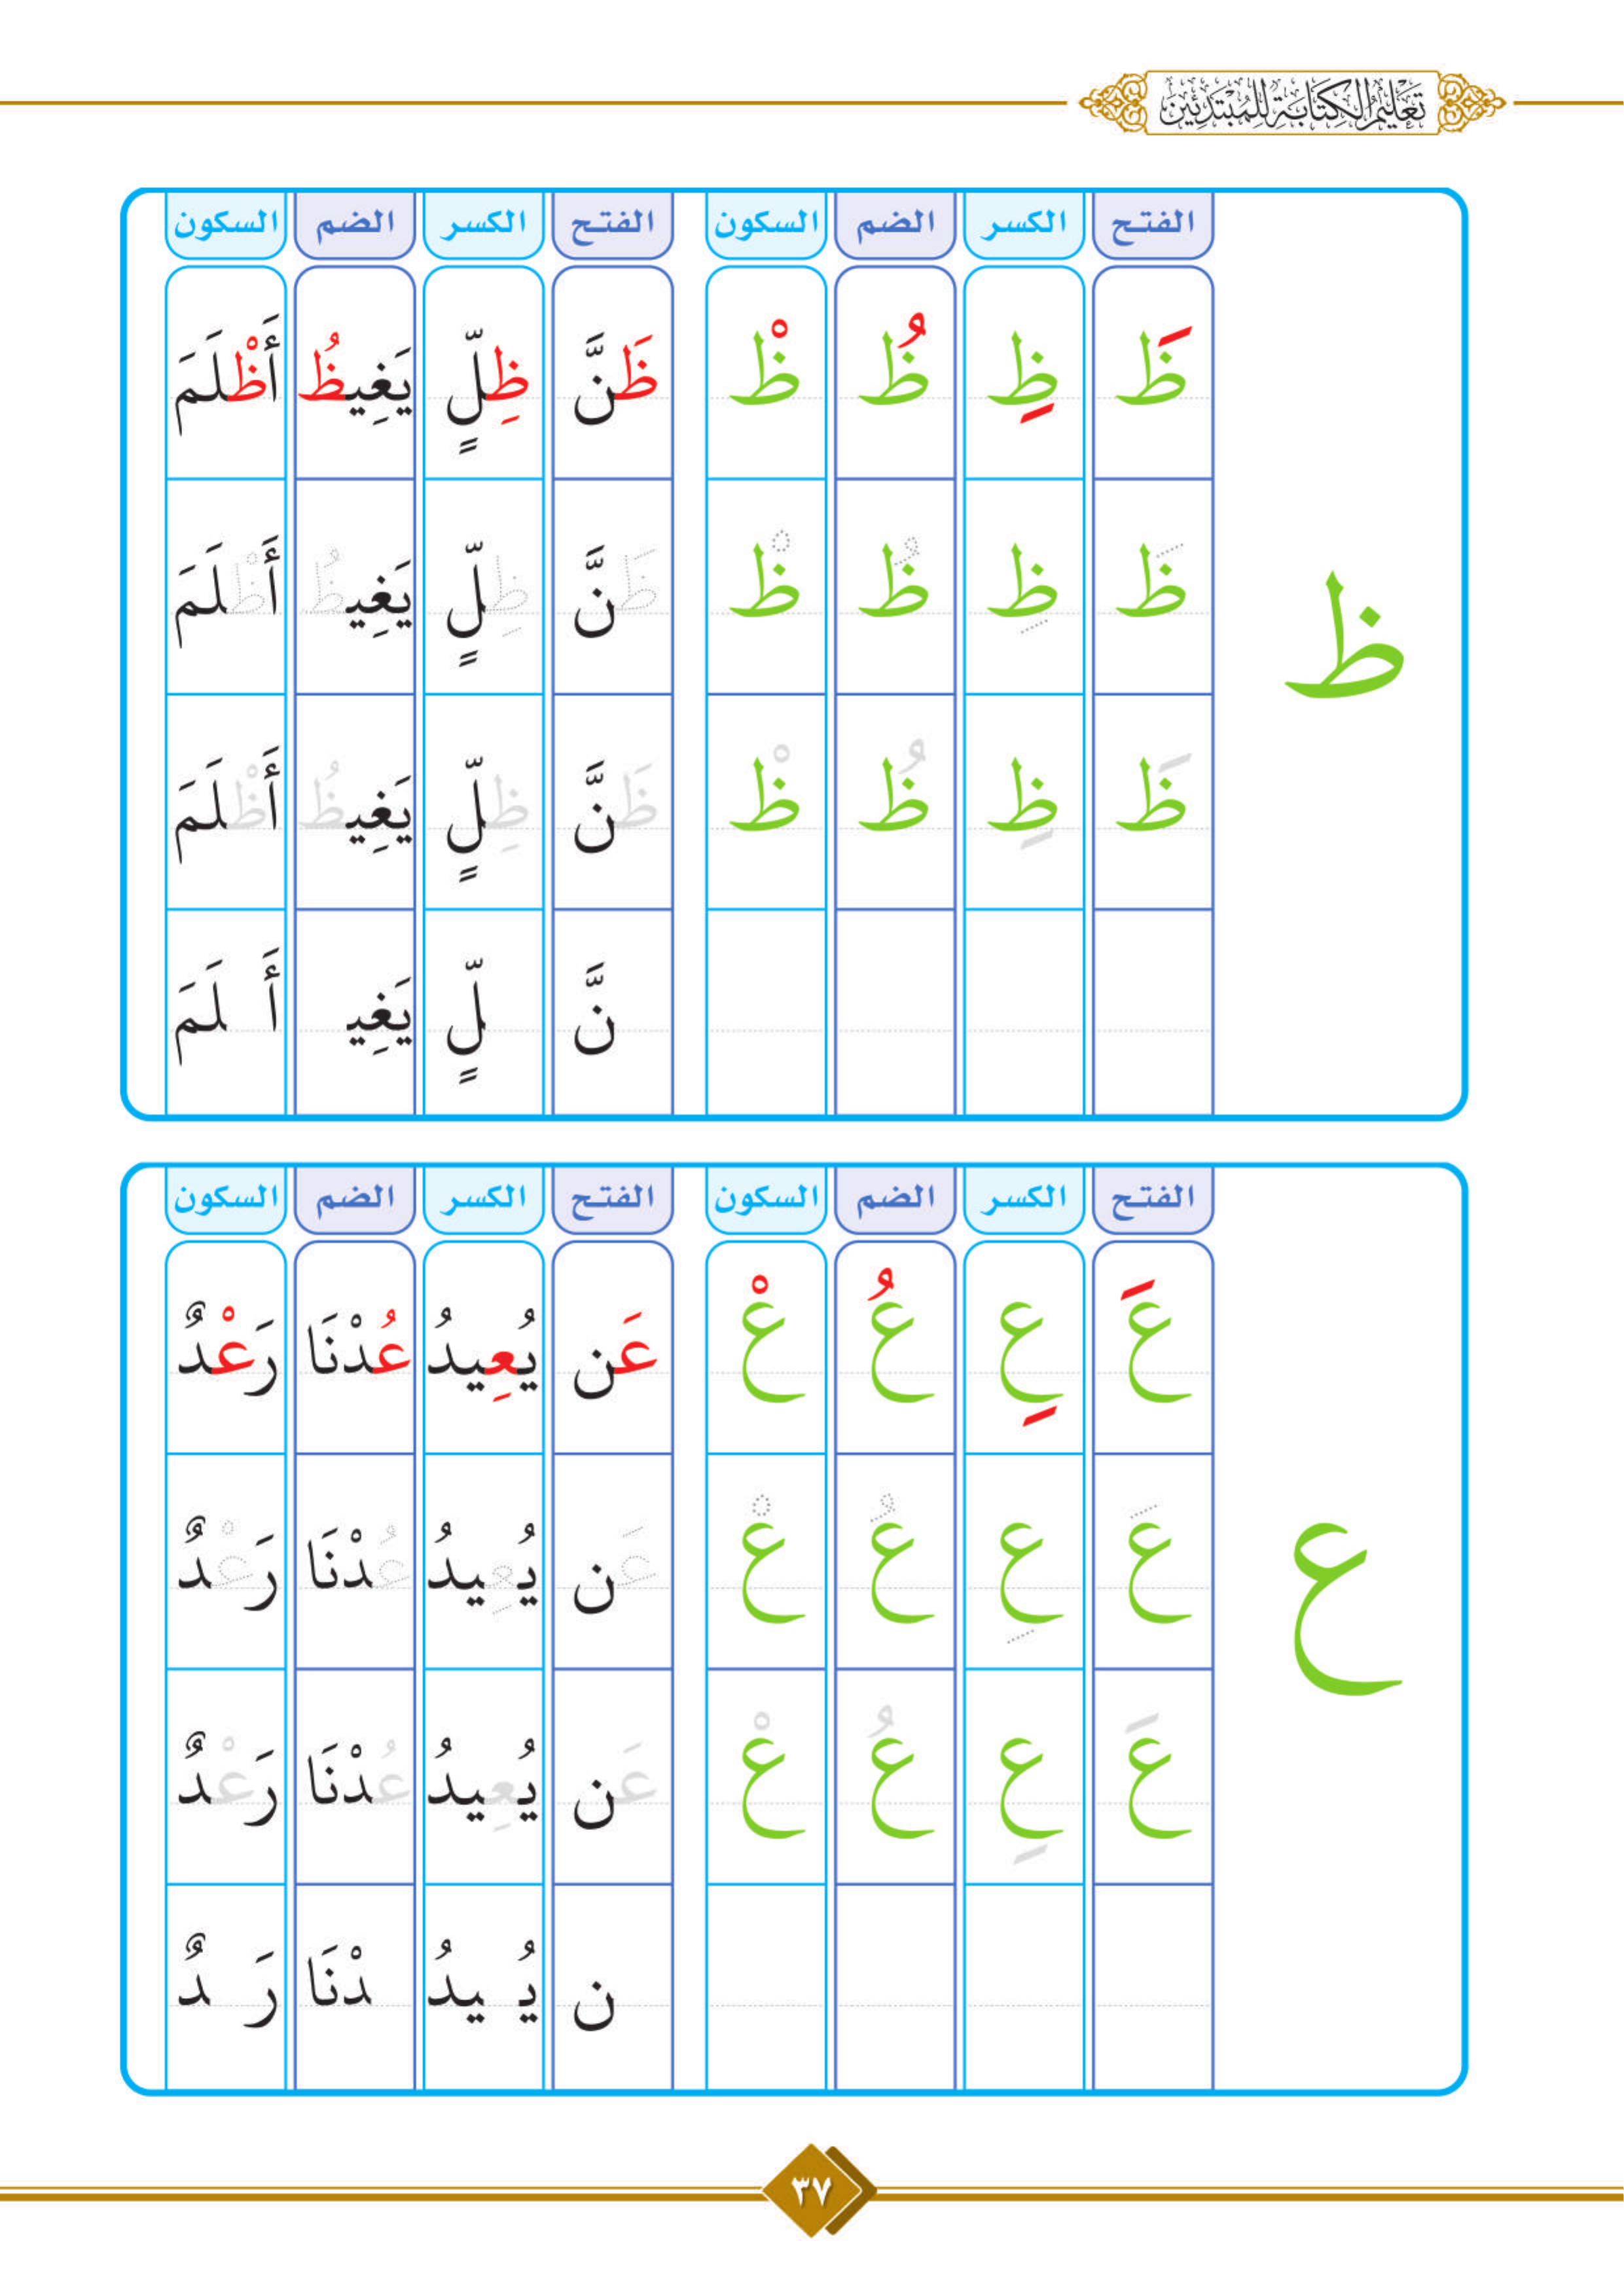 تَعْلِيمُ الْكِتَابَةِ لِلْمُبْتَدِئِينَ
الفتح الكسر الضم السكون الفتح الكسر الضم السكون
ظَ ظِ ظُ ظْ ظَنَّ ظِلٍّ يَغِيظُ أَظْلَمَ
ظ
ظَ ظِ ظُ ظْ ظَنَّ ظِلٍّ يَغِيظُ أَظْلَمَ
ظَ ظِ ظُ ظْ ظَنَّ ظِلٍّ يَغِيظُ أَظْلَمَ
نَّ لٍّ يَغِيـ أَ لَمَ
الفتح الكسر الضم السكون الفتح الكسر الضم السكون
عَ عِ عُ عْ عَن يُعِيدُ عُدْنَا رَعْدٌ
ع
عَ عِ عُ عْ عَن يُعِيدُ عُدْنَا رَعْدٌ
عَ عِ عُ عْ عَن يُعِيدُ عُدْنَا رَعْدٌ
ن يُـ ـيدُ ـدْنَا رَ ـدٌ
٣٧